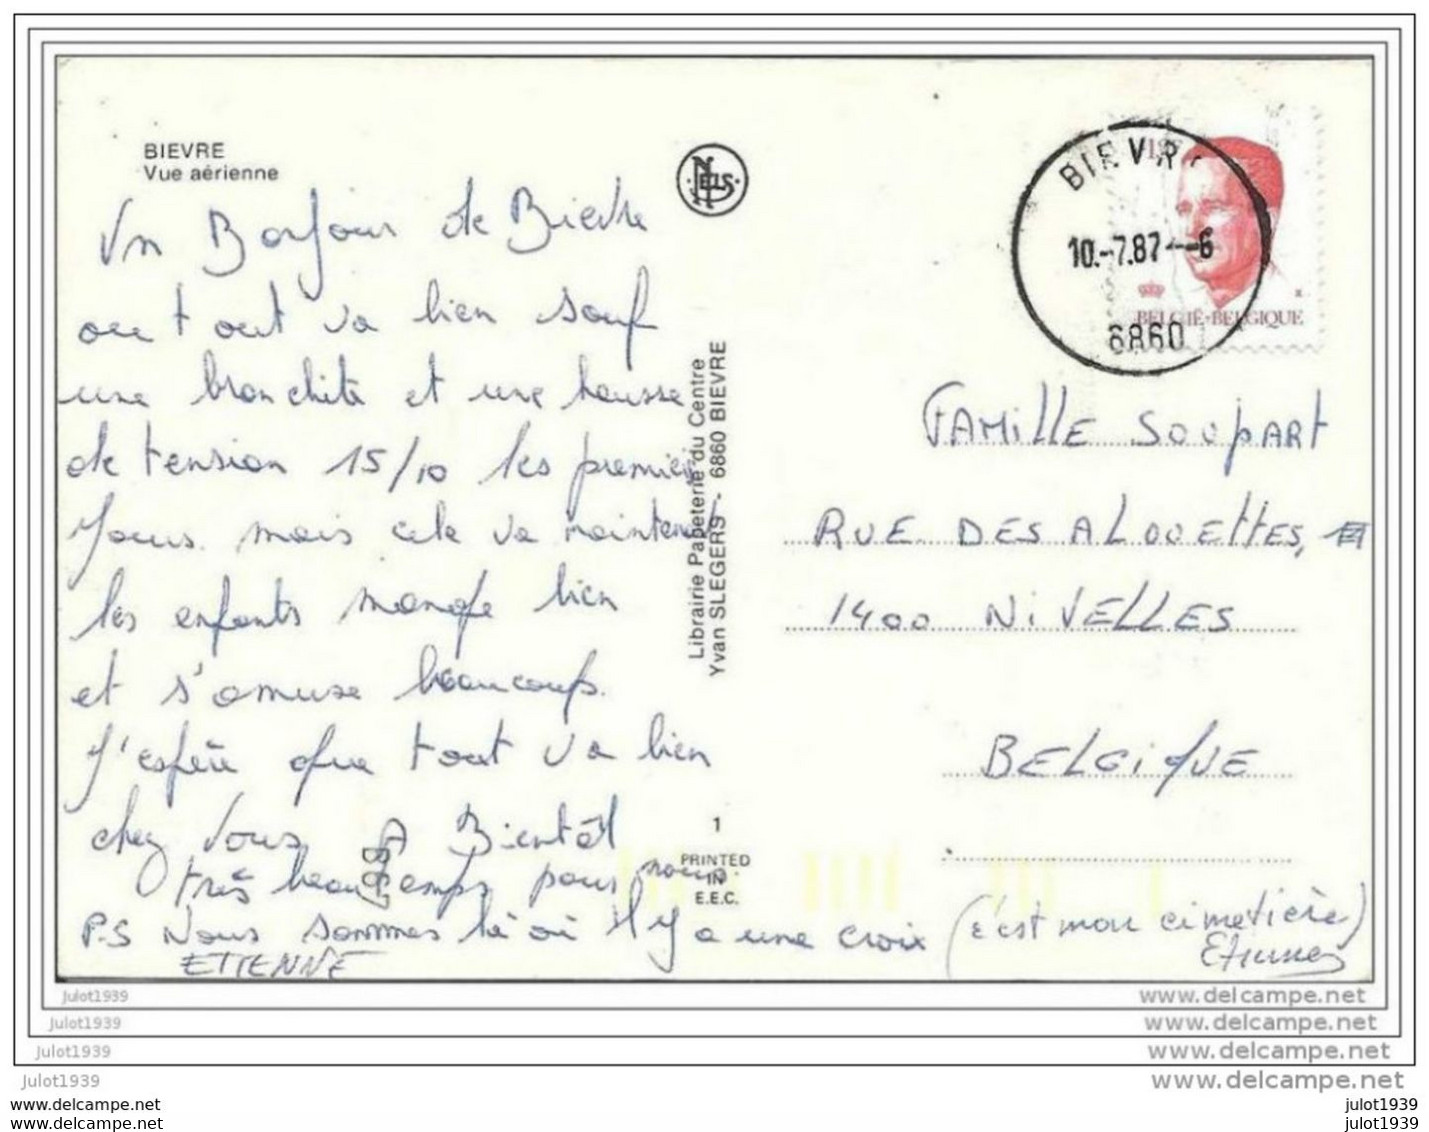 BIEVRE
Vue aérienne
Un Bonjour de Bievre
ou tout va bien sauf
une bronchite et une hausse
de tension 15/10 les premier
Jours. mais cela va maintenant
les enfants mange bien
et s'amuse beaucoup.
J'espère que tout va bien
chez vous A Bientôt
très beau temps pour nous.
P.S Nous sommes là où il y a une croix (c'est mon cimetière)
ETIENNE
Etienne
NELS
Librairie Papeterie du Centre
Yvan SLEGERS - 6860 BIEVRE
1
PRINTED
IN
E.E.C.
BIEVR
10.-7.87--6
6860
BELGIË-BELGIQUE
FAMILLE SOUPART
RUE DES ALOUETTES,
1400 NIVELLES
BELGIQUE
Julot1939
www.delcampe.net
Julot1939
www.delcampe.net
Julot1939
www.delcampe.net
Julot1939
www.delcampe.net
www.delcampe.net
julot1939
www.delcampe.net
julot1939